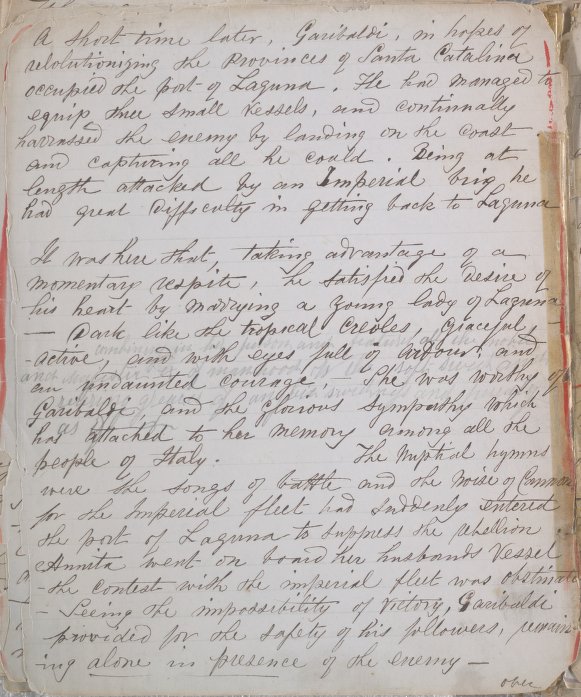 A short time later, Garibaldi, in hopes of
revolutionizing the Provinces of Santa Catalina
occupied the port of Laguna. He had managed to
equip three small vessels, and continually
harrassed the enemy by landing on the coast
and capturing all he could. Being at
length attacked by an Imperial brig he
had great difficulty in getting back to Laguna
It was here that, taking advantage of a
momentary respite, he satisfied the desire of
his heart by marrying a young lady of Laguna
- Dark like the tropical Creoles, Graceful,
active and with eyes full of Ardour, and
an undaunted courage, - She was worthy of
Garibaldi, and the glorious sympathy which
has attached to her memory among all the
people of Italy. The Nuptial hymns
were the songs of battle and the noise of Cannon
for the Imperial fleet had suddenly entered
the port of Laguna to suppress the rebellion
Annita went on board her husbands vessel
- the contest with the imperial fleet was obstinate
- Seeing the impossibility of victory, Garibaldi
provided for the safety of his followers, remain-
ing alone in presence of the enemy -
over